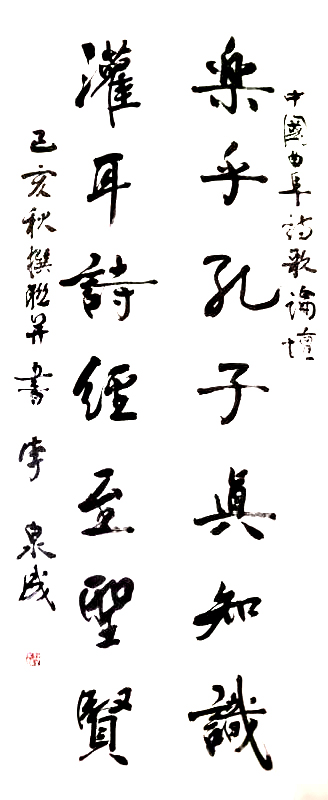 中國曲阜詩歌論壇
樂乎孔子真知識
灌耳詩經至聖賢
己亥秋撰聯並書李泉成